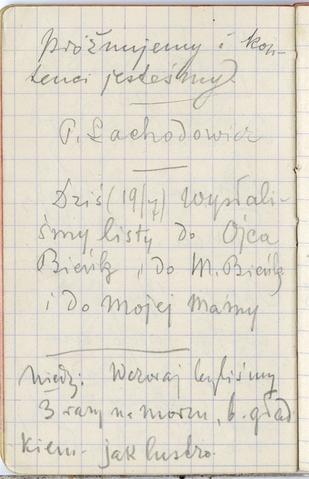 próżnujemy i kon-
tenci jesteśmy.
P. Lachodowicz
Dziś (19/V) wysłali-
śmy listy do Ojca
Bieńk, do M. Bieńk
i do Mojej Mamy
Niedz: Wczoraj byliśmy
3 razy na morzu, b. gład
kiem - jak lustro.